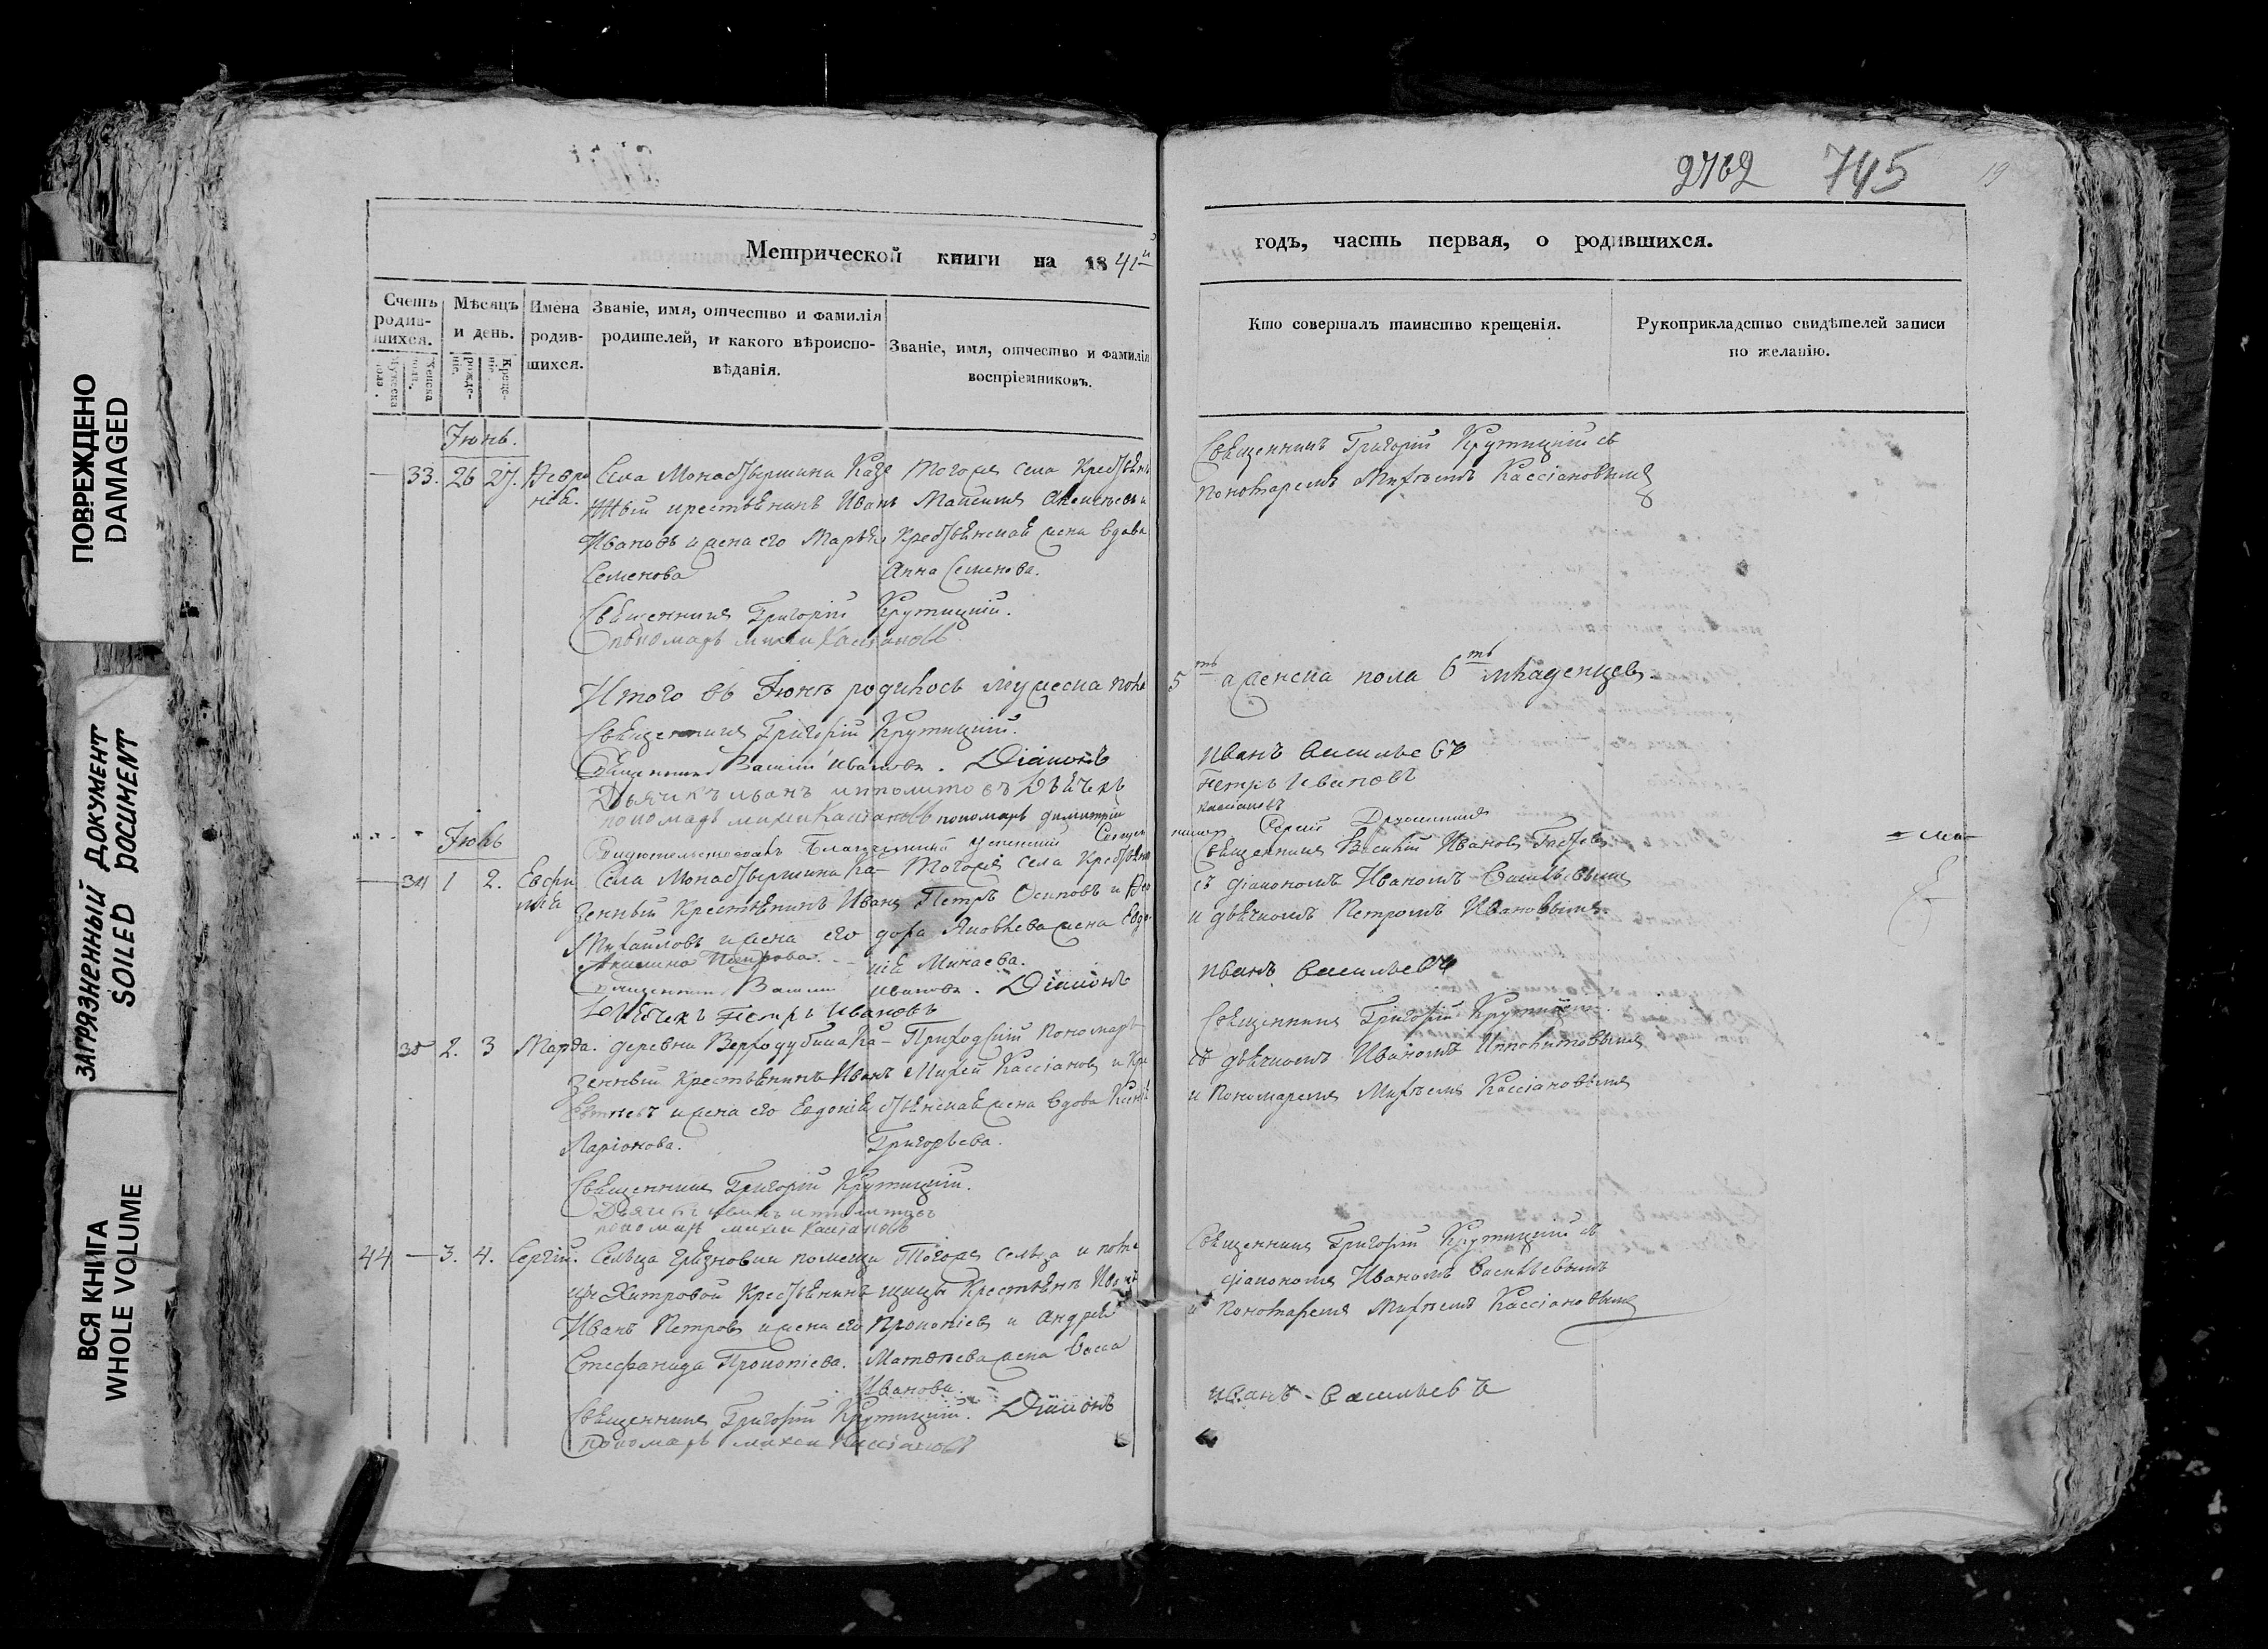 ПОВРЕЖДЕНО
DAMAGED
ЗАГРЯЗНЕННЫЙ ДОКУМЕНТ
SOILED DOCUMENT
ВСЯ КНИГА
WHOLE VOLUME
Метрической книги на 1841й
Счетъ родившихся.
Мужеска пола.
Женска пола.
Мѣсяцъ и день.
рожденіе.
Крещеніе.
Имена родившихся.
Званіе, имя, отчество и фамилія
родителей, и какого вѣроиспо-
вѣданія.
Званіе, имя, отчество и фамилія
воспріемниковъ.
Іюнь.
33. 26 27. Села Монастырщина Казе
нный крестьянинъ Иванъ
Ивановъ и жена его Марья
Семенова
Тогоже села
Крестьянская жена вдова
Анна Семенова.
Священникъ Григорій Крутицкій.
пономарь михеи Кассіановъ
Итого въ Іюнѣ родилось мужеска пола
Священникъ Григорій Крутицкій.
Священникъ Василій Ивановъ. Діаконъ
Дьячикъ иванъ иполитовъ Дьячекъ
пономарь михеи Кассіановъ пономарь димитрій
Свидетельствовалъ Благочинный Успенскій
Іюль
34 1 2. Евфи
мїа
Села Монастырщина Ка-
зенный Крестьянинъ Иванъ
Михайловъ и жена его
Акилина Петрова.
Тогоже села
Петръ Осиповъ и Фео
дора Яковлева жена Евдо-
кія Минаева.
Священникъ Василій Ивановъ. Діаконъ
Дьячекъ Петръ Ивановъ
35 2. 3 Марфа. деревни Верходубина Ка-
зенный Крестьянинъ Иванъ
и жена его Евдокія
Ларіонова.
Приходскій пономарь
Михей Кассіановъ и Кре
стьянская жена вдова
Григорьева.
Священникъ Григорій Крутицкій.
Дьячекъ иванъ иполитовъ
пономарь михеи Кассіановъ
44 — 3. 4. Сергій. Сельца Грязновки помещи
цы Хитровой Крестьянинъ
Иванъ Петровъ и жена его
Стефанида Прокопіева.
Тогоже сельца и поме
щицы Крестьянъ
Прокопіевъ и Андрея
Матвѣева жена Васса
Иванова.
Священникъ Григорій Крутицкій. Діаконъ
пономарь михеи Кассіановъ
2762 745 19
годъ, часть первая, о родившихся.
Кто совершалъ таинство крещенія.
Рукоприкладство свидѣтелей записи
по желанію.
Священникъ Григорій Крутицкій съ
пономаремъ Михѣемъ Кассіановымъ
5ть а женска пола 6ть младенцевъ.
иванъ васильевъ
Петръ Ивановъ
кассіановъ
Священникъ Василій Ивановъ
съ діакономъ Иваномъ Васильевымъ
и дьячкомъ Петромъ Ивановымъ.
иванъ васильевъ
Священникъ Григорій Крутицкій
съ дьячкомъ Иваномъ Ипполитовымъ
и пономаремъ Михѣемъ Кассіановымъ
Священникъ Григорій Крутицкій съ
діакономъ Иваномъ Васильевымъ
и пономаремъ Михѣемъ Кассіановымъ
иванъ васильевъ